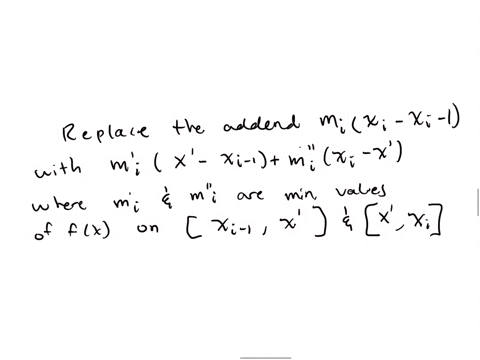 Replace the addend mᵢ(xᵢ - xᵢ - 1)
with m'ᵢ (x' - xᵢ₋₁) + m''ᵢ (xᵢ - x')
where m'ᵢ & m''ᵢ are min values
of f(x) on [xᵢ₋₁, x') & [x', xᵢ]